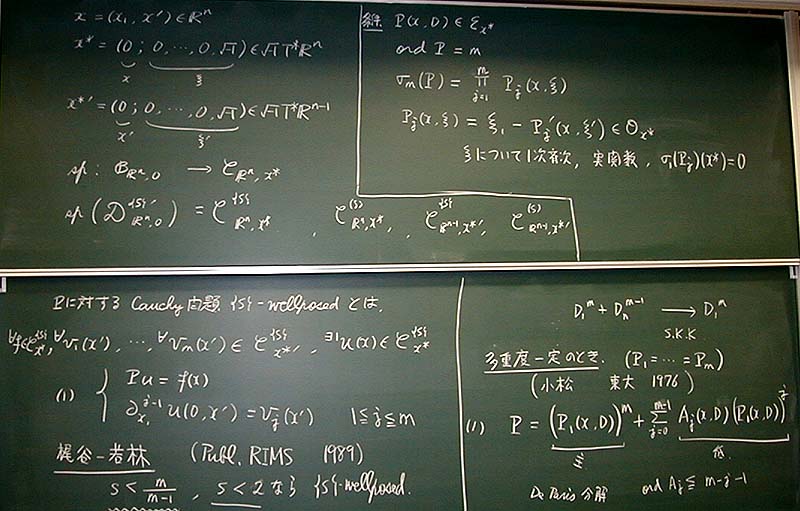 x = (x₁, x′) ∈ ℝⁿ
x* = (0; 0, ⋯, 0, √-1) ∈ √-1 T*ℝⁿ
x ξ
x*′ = (0; 0, ⋯, 0, √-1) ∈ √-1 T*ℝⁿ⁻¹
x′ ξ′
sp : 𝓑_{ℝⁿ,0} → 𝓒_{ℝⁿ,x*}
sp (𝓓^{{s}′}_{ℝⁿ,0}) = 𝓒^{{s}}_{ℝⁿ,x*} , 𝓒^{(s)}_{ℝⁿ,x*} , 𝓒^{{s}}_{ℝⁿ⁻¹,x*′} , 𝓒^{(s)}_{ℝⁿ⁻¹,x*′}
P(x,D) ∈ 𝓔_{x*}
ord P = m
σ_m(P) = ∏_{j=1}^{m} P_j(x,ξ)
P_j(x,ξ) = ξ₁ - P_j′(x,ξ′) ∈ 𝒪_{x*}
ξについて1次斉次, 実関数, σ₁(P_j)(x*)=0
Pに対する Cauchy問題 {s}-wellposed とは,
∀f∈𝓒^{{s}}_{x*}, ∀v₁(x′), ⋯, ∀v_m(x′) ∈ 𝓒^{{s}}_{x*′}, ∃1 u(x) ∈ 𝓒^{{s}}_{x*}
(1) { Pu = f(x)
∂_{x₁}^{j-1} u(0,x′) = v_j(x′) 1≦j≦m
梶谷-若林 (Publ. RIMS 1989)
s < m/(m-1) , s<2 なら {s}-wellposed.
D₁^m + D_n^{m-1} → D₁^m
S.K.K
多重度一定のとき. (P₁=⋯=P_m)
(小松 東大 1976)
(1) P = (P₁(x,D))^m + ∑_{j=0}^{m-1} A_j(x,D)(P₁(x,D))^j
主 低
De Paris 分解 ord A_j ≦ m-j-1